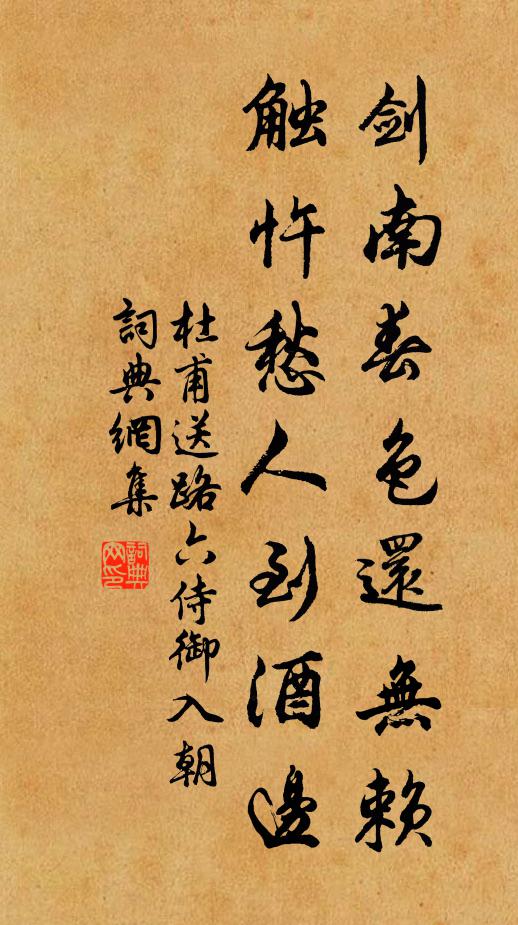 剑南春色還無賴
触忤愁人到酒邊
杜甫送路六侍御入朝
詞典網集
詞典
网印